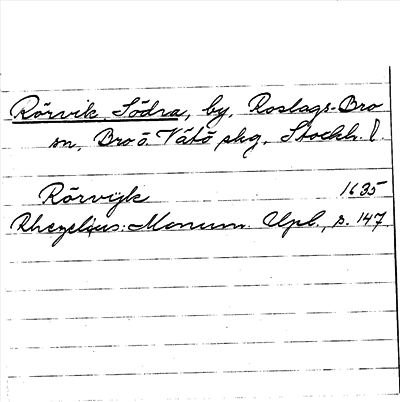 Rörvik, Södra, by, Roslags-Bro
sn, Bro o. Vätö skg, Stockh. l.
Rörvijk 1635
Rhezelius: Monum. Upl., s. 147.